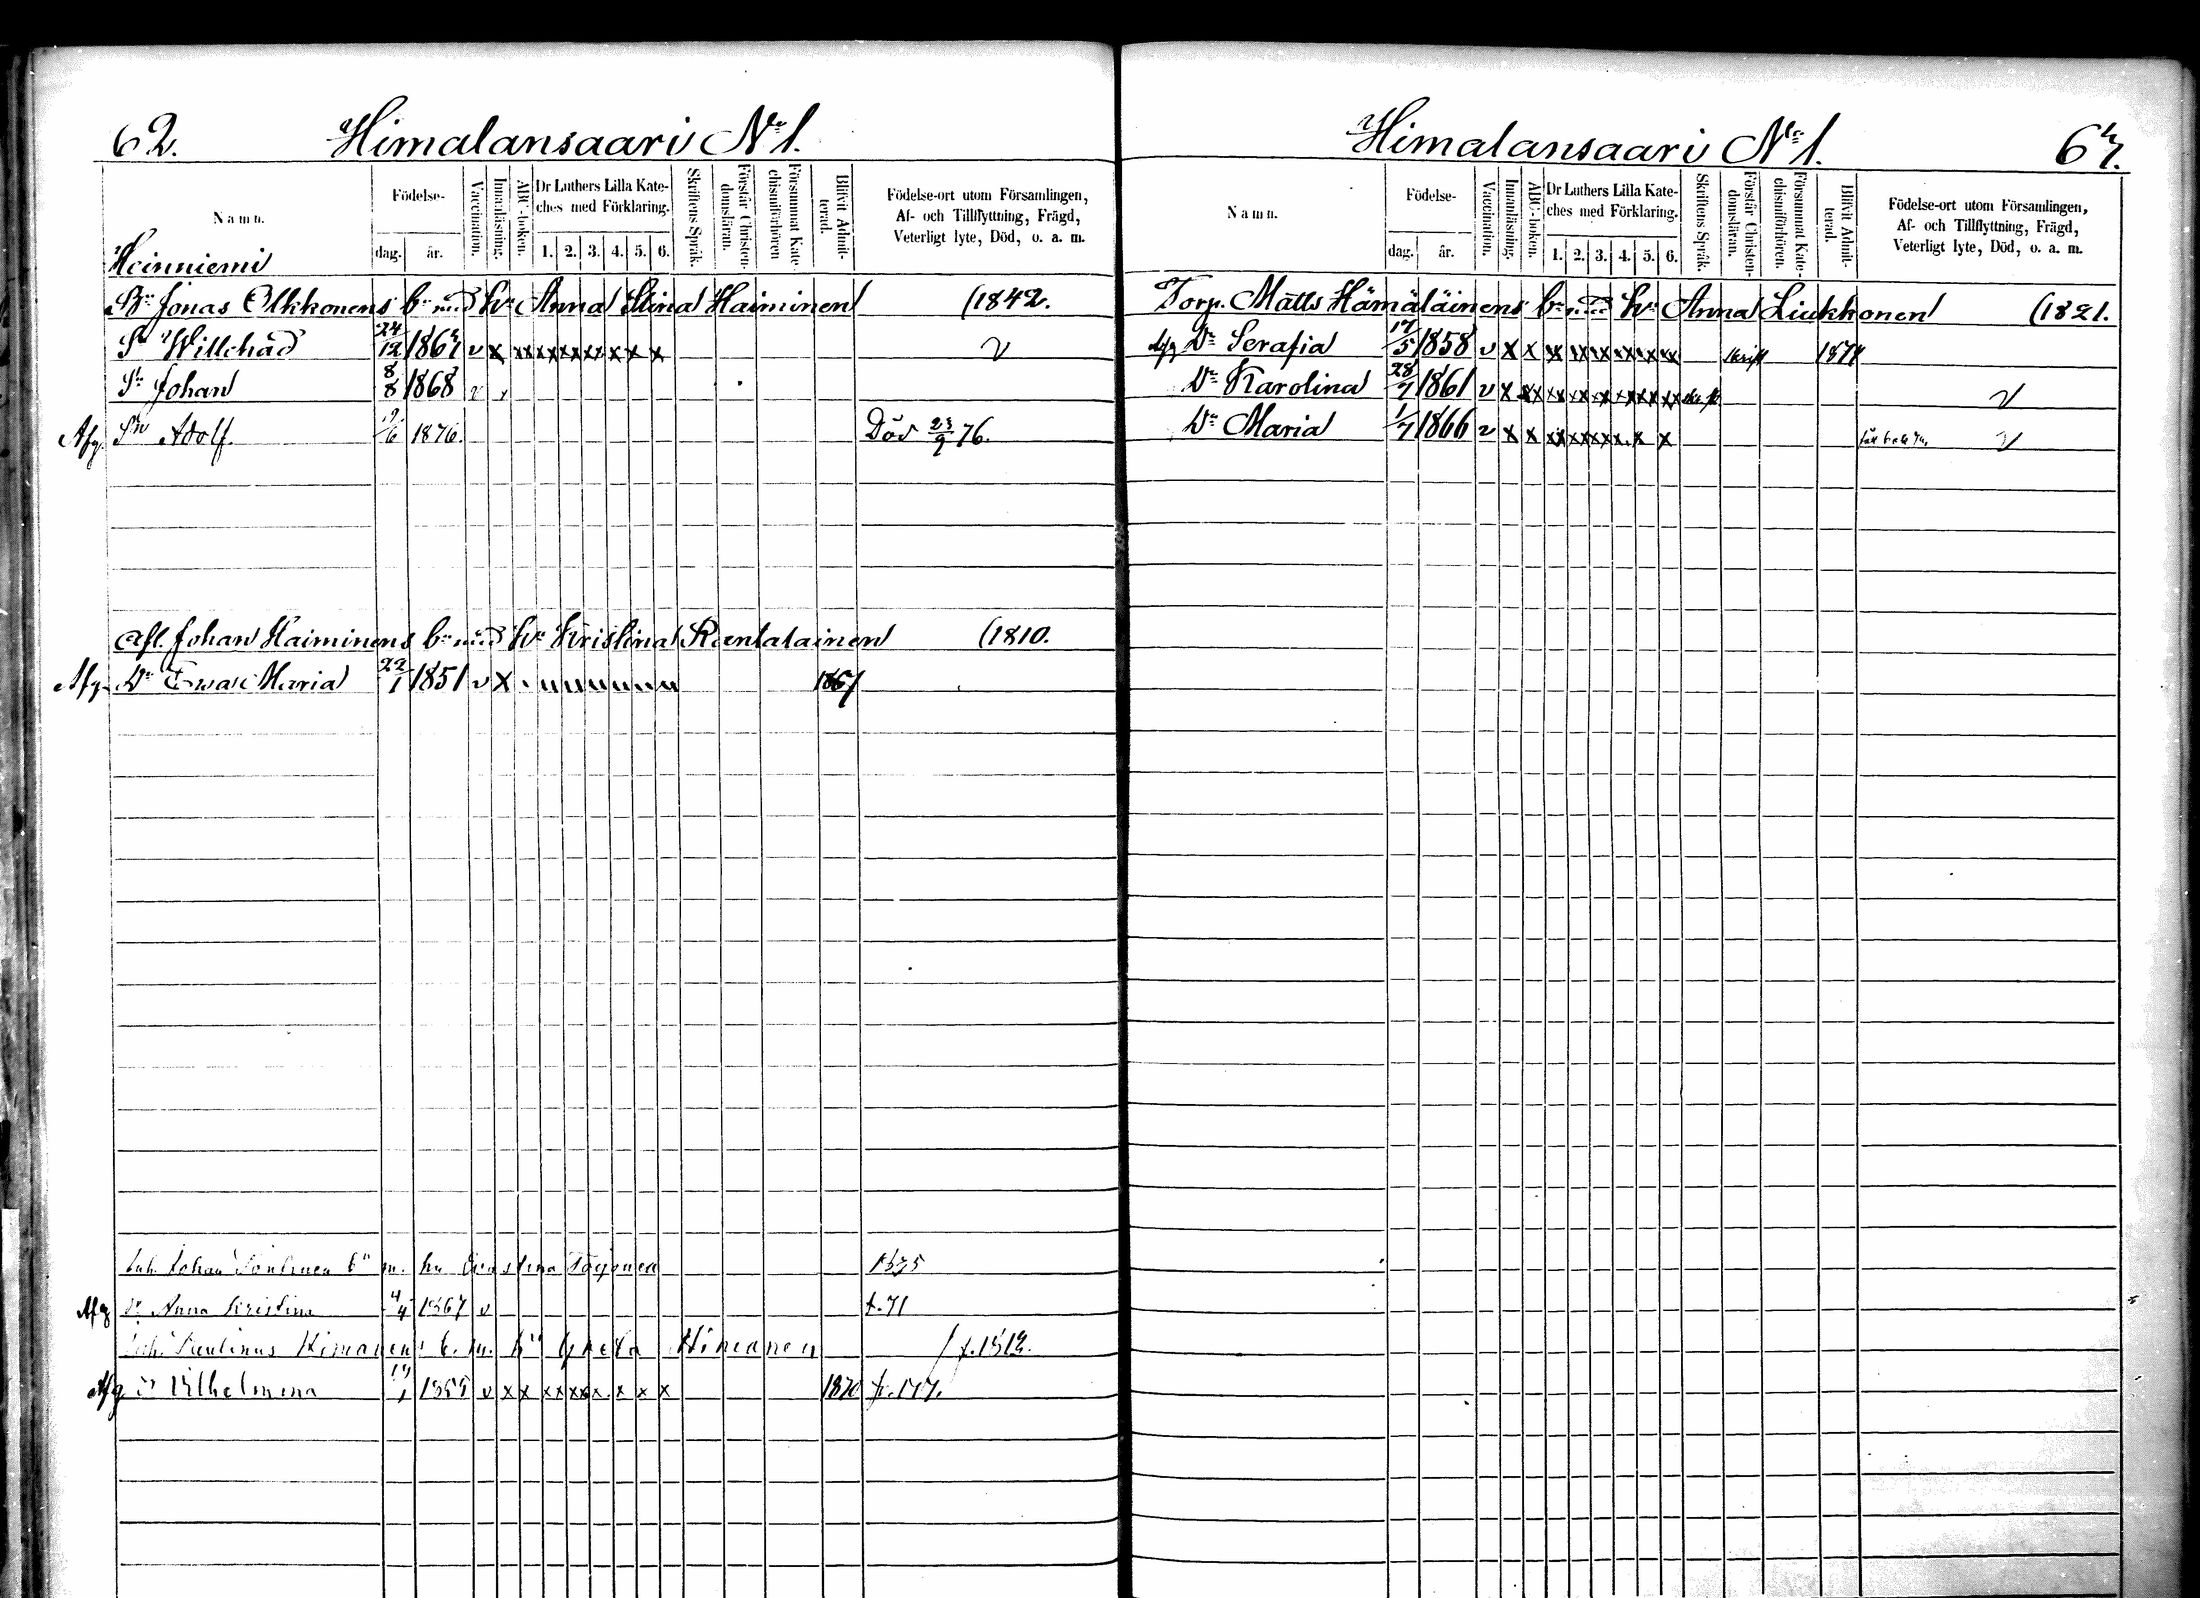 62. Himalansaari No 1.
Namn.
Födelse-
dag. år.
Vaccination.
Innanläsning.
ABC-boken.
Dr Luthers Lilla Kate-
ches med Förklaring.
1. 2. 3. 4. 5. 6.
Skriftens Språk.
Förstår Christen-
domsläran.
Försummat Kate-
chismiförhören
Blifvit Admit-
terad.
Födelse-ort utom Församlingen,
Af- och Tillflyttning, Frägd,
Veterligt lyte, Död, o. a. m.
Heinniemi
Jonas Olkkonens bn med hu Anna Stina Haiminen (1842.
Sn Willehad 24/12 1867 v x xx xx xx xx x x x v
Sn Johan 8/8 1868 v
Afg. Sn Adolf. 1876. Död 23/9 76.
Afl. Johan Haiminens bn med hu Kristina Rantalainen (1810.
Afg. Dr Ewa Maria 22/1 1851 v x 1867
Johan bn m. hu
Afg Dr Anna Kristina 4/4 1867 v f. 71
Himanens b. m. hu Greta Himanen
Afg Dr Vilhelmina v x x xx xx x x x 1870
Himalansaari No 1. 63.
Namn.
Födelse-
dag. år.
Vaccination.
Innanläsning.
ABC-boken.
Dr Luthers Lilla Kate-
ches med Förklaring.
1. 2. 3. 4. 5. 6.
Skriftens Språk.
Förstår Christen-
domsläran.
Försummat Kate-
chismiförhören.
Blifvit Admit-
terad.
Födelse-ort utom Församlingen,
Af- och Tillflyttning, Frägd,
Veterligt lyte, Död, o. a. m.
Torp. Matts Hämäläinens bn med hu Anna Liukkonen (1821.
Afg Dr Serafia 17/5 1858 v x x xx xx xx xx xx xx skrift
Dr Karolina 28/7 1861 v x xx xx xx xx xx xx xx v
Dr Maria 1/7 1866 v x x xx xx xx x x x v